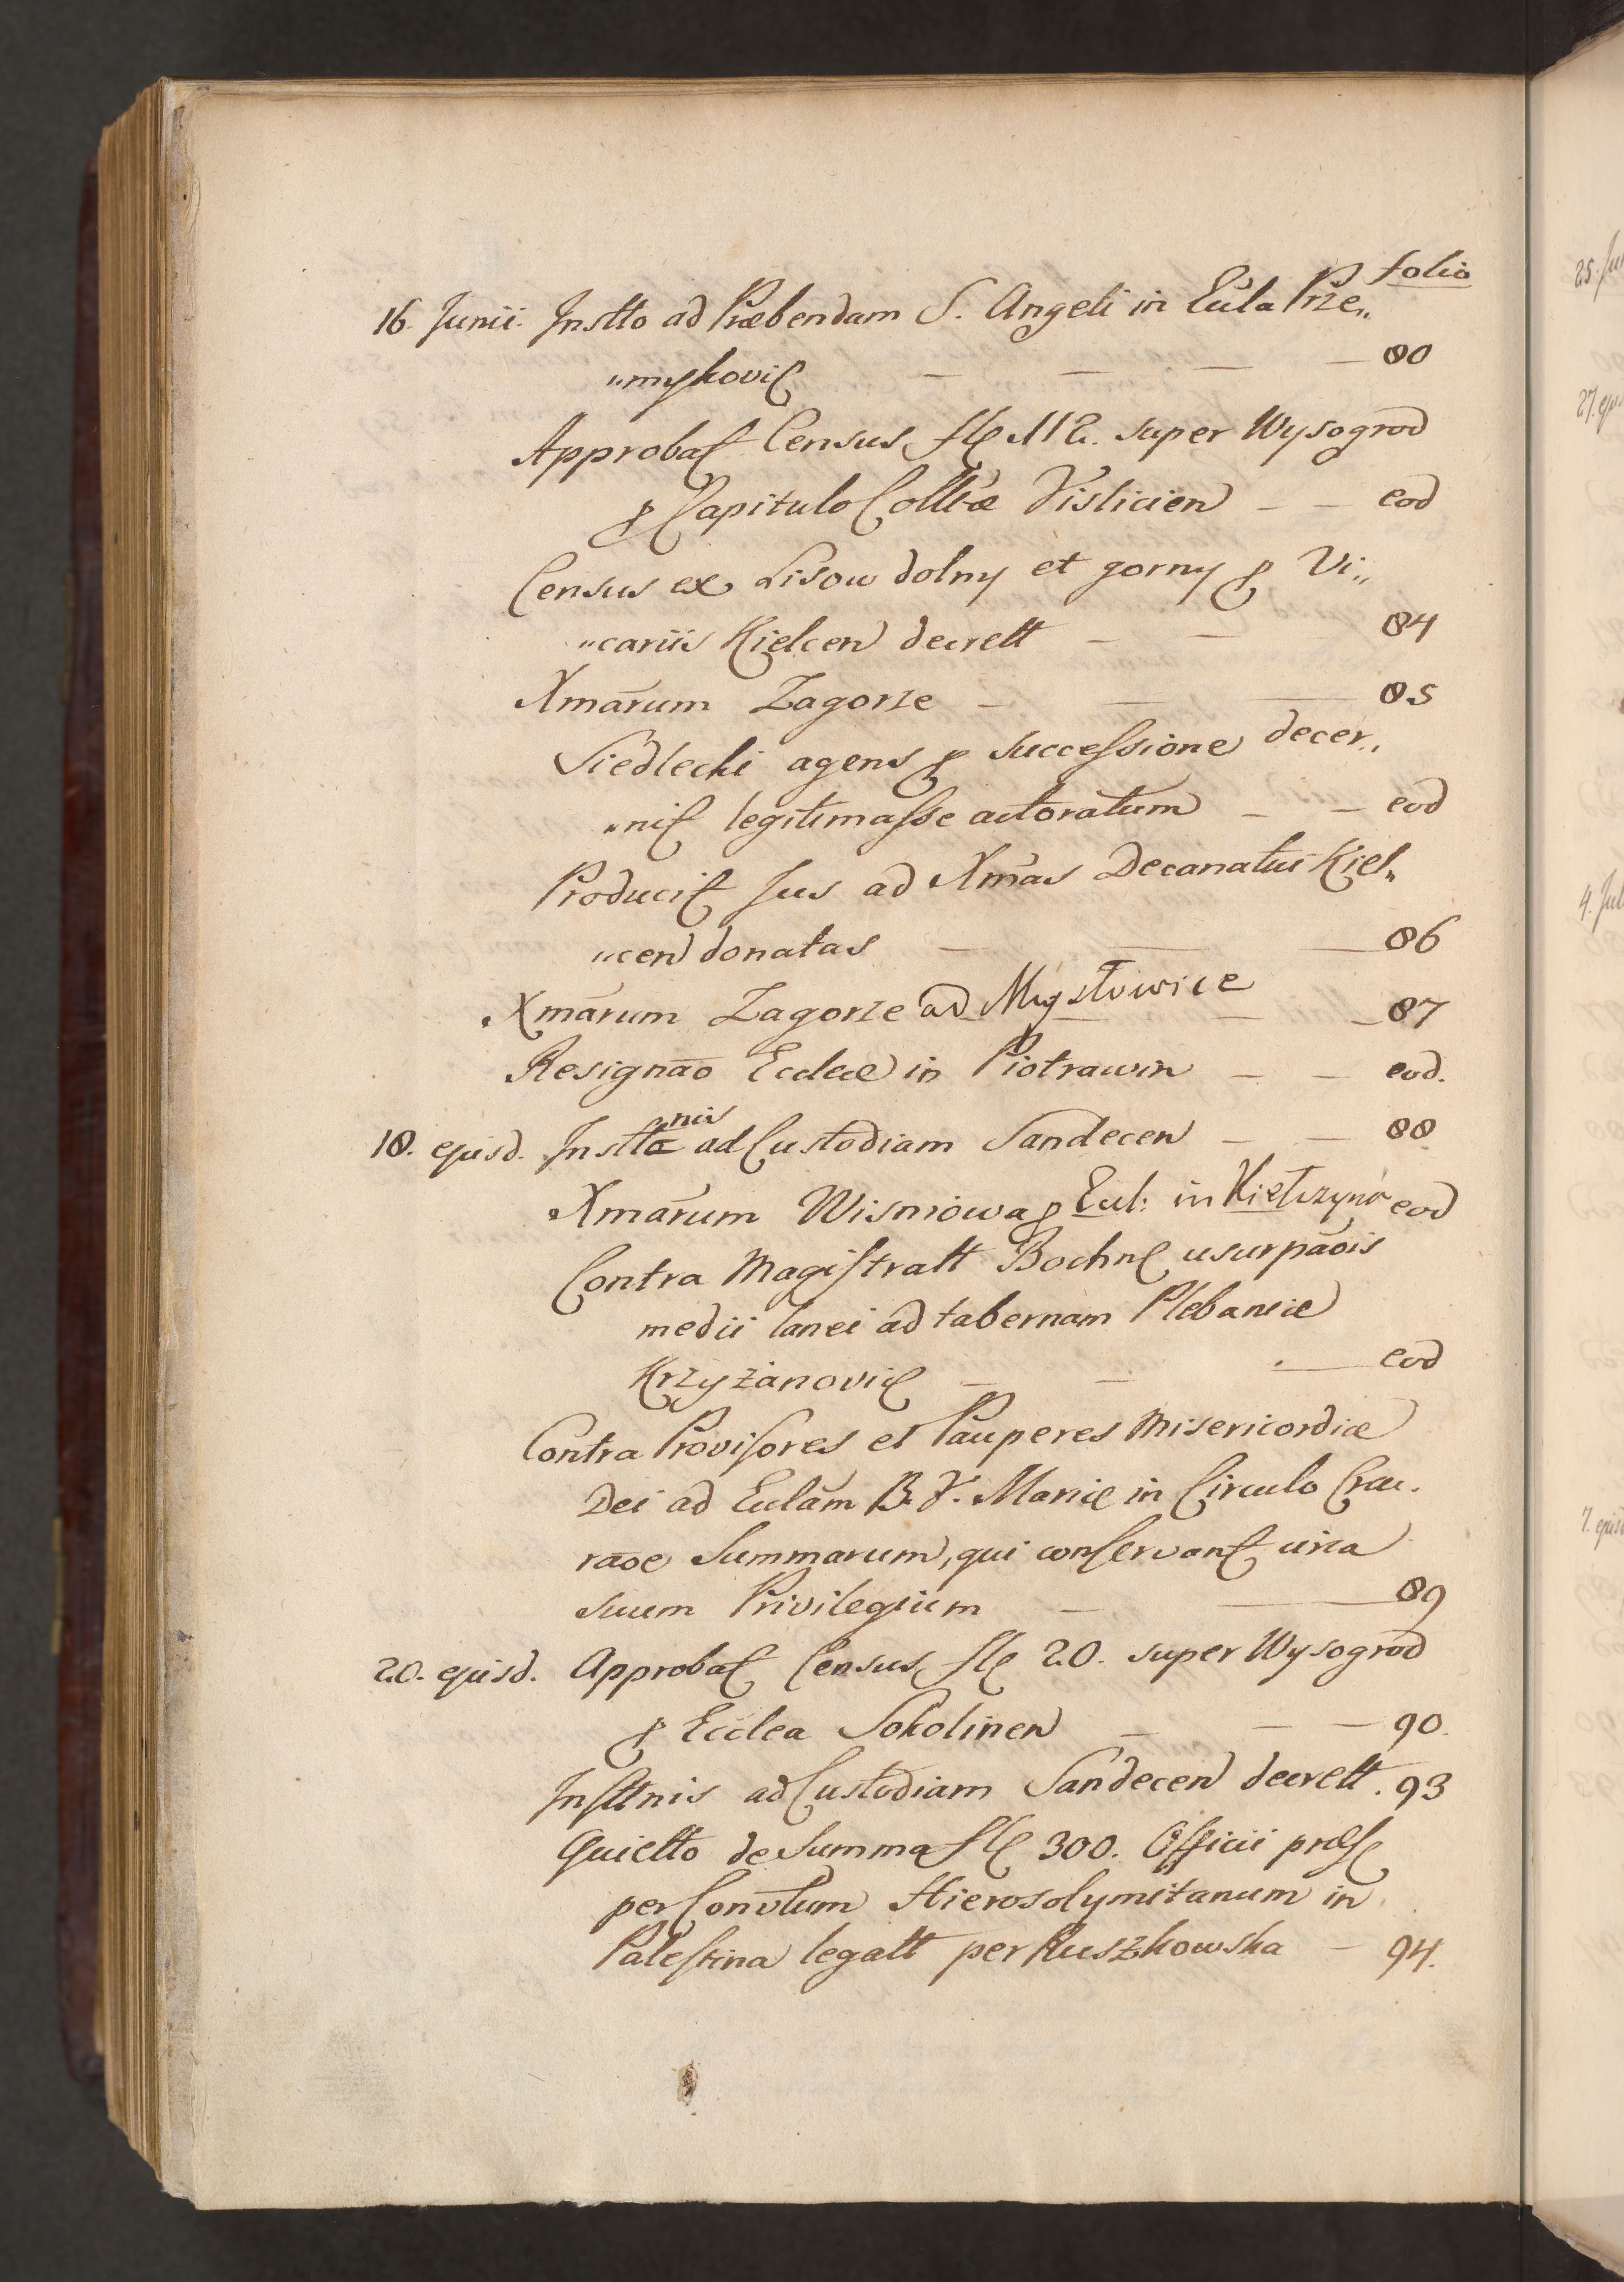 folio
16. Junii. Instto ad Præbendam S. Angeli in Eccla Prze„
„mykovic — — — 80
Approbat Census fl 112. super Wysogrod
p Capitulo Collæ Vislicien — — eod
Census ex Lisow dolny et gorny p Vi„
„cariis Kielcen decrett — — 84
Xmarum Zagorze — — — 85
Siedlecki agens p successione decer„
„nit legitimasse actoratum — — eod
Producit Jus ad Xmas Decanatui Kiel„
„cen donatas — — — 86
Xmarum Zagorze ad Mysłowice — — 87
Resignao Eccleæ in Piotrawin — — eod.
18. ejusd. Insttanis ad Custodiam Sandecen — — 88
Xmarum Wisniowa p Eccl: in Kiełczyna eod
Contra Magistratt Bochnc usurpaois
medii lanei ad tabernam Plebaniæ
Krzyżanovic — — — eod
Contra Provisores et Pauperes Misericordiæ
Dei ad Ecclam B. V. Mariæ in Circulo Crac.
raoe Summarum, qui conservant circa
suum Privilegium — — 89
20. ejusd. Approbat Census fl 20. super Wysogrod
p Ecclea Sokolinen — — — 90.
Insttnis ad Custodiam Sandecen decrett. 93
Quietto de Summa fl 300. Officii præs
per Convtum Hierosolymitanum in
Palestina legatt per Ruszkowska — 94.
25. Ju
27. ej
4. Jul
7. ejus